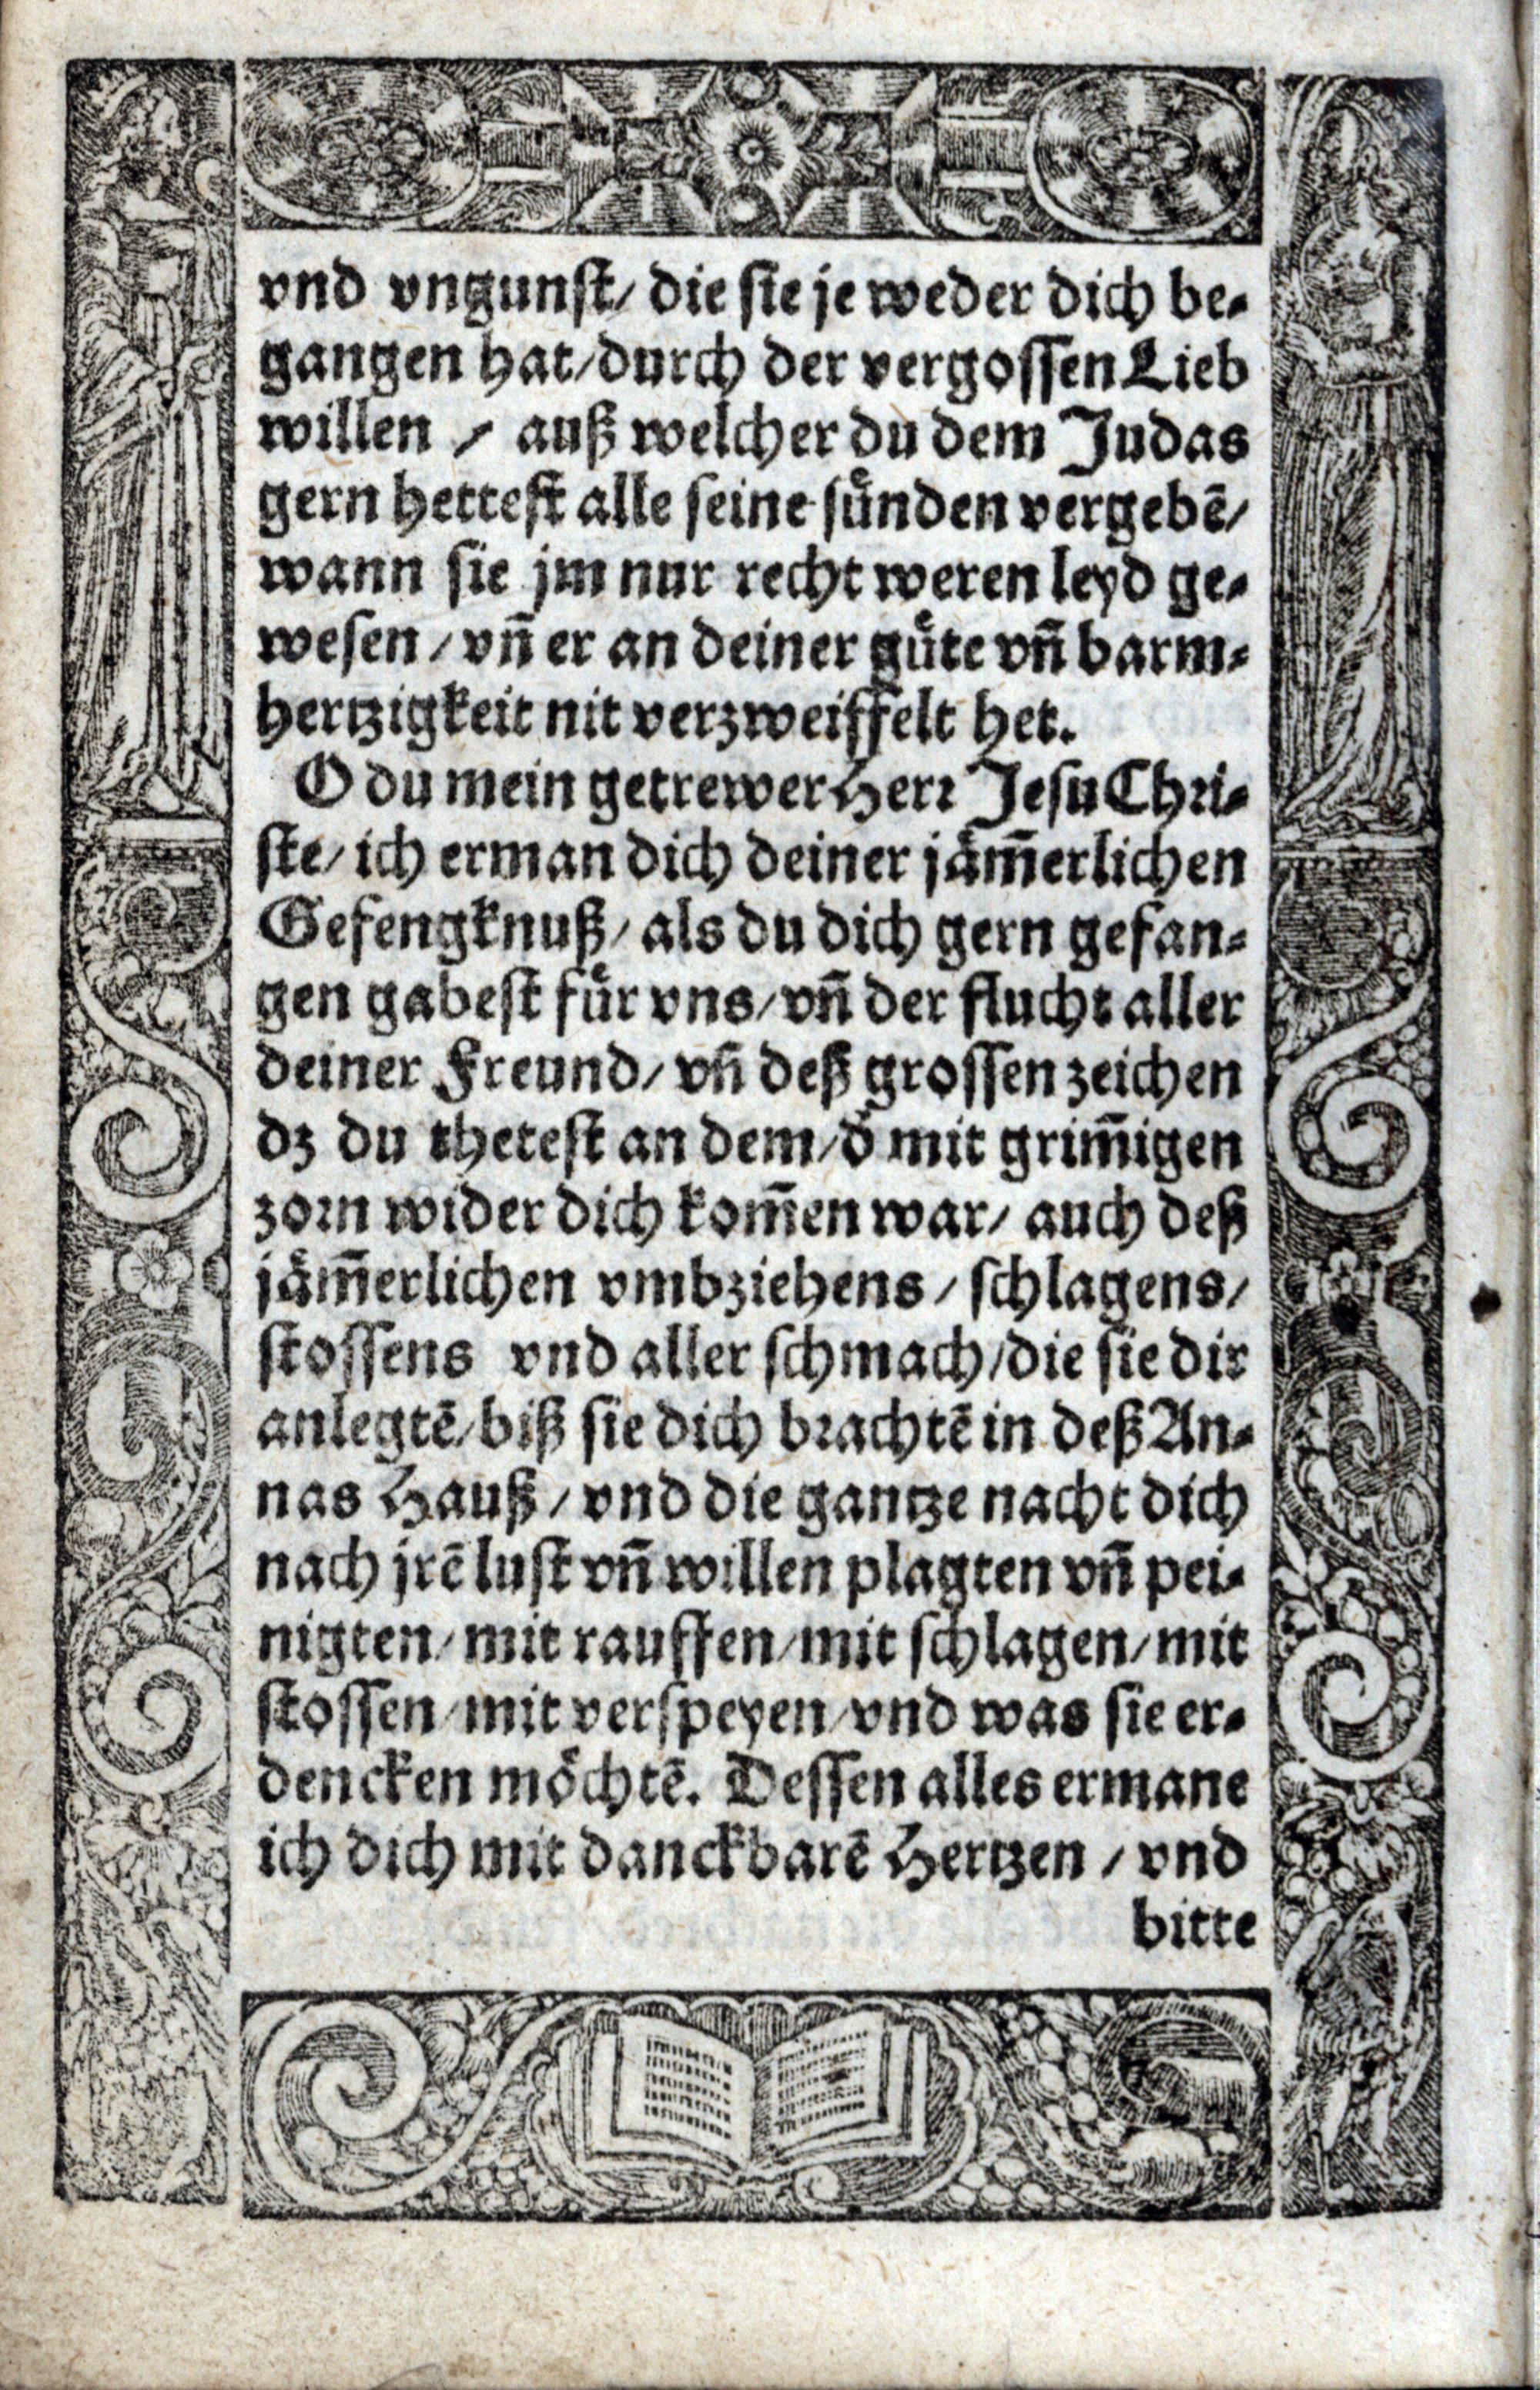 vnd vngunst/ die sie je weder dich be⸗
gangen hat/durch der vergossen Lieb
willen / auß welcher du dem Judas
gern hettest alle seine suͤnden vergebẽ/
wann sie jm nur recht weren leyd ge⸗
wesen / vñ er an deiner guͤte vñ barm⸗
hertzigkeit nit verzweiffelt het.
O du mein getrewer Herr Jesu Chri⸗
ste/ ich erman dich deiner jaͤm̃erlichen
Gefengknuß/ als du dich gern gefan⸗
gen gabest fuͤr vns/vñ der flucht aller
deiner Freund/ vñ deß grossen zeichen
dz du thetest an dem/ď mit grim̃igen
zorn wider dich kom̃en war/ auch deß
jaͤm̃erlichen vmbziehens / schlagens/
stossens vnd aller schmach/die sie dir
anlegtẽ/biß sie dich brachtẽ in deß An⸗
nas Hauß / vnd die gantze nacht dich
nach jrẽ lust vñ willen plagten vñ pei⸗
nigten/ mit rauffen/mit schlagen/mit
stossen/mit verspeyen/vnd was sie er⸗
dencken moͤchtẽ. Dessen alles ermane
ich dich mit danckbarẽ Hertzen / vnd
bitte